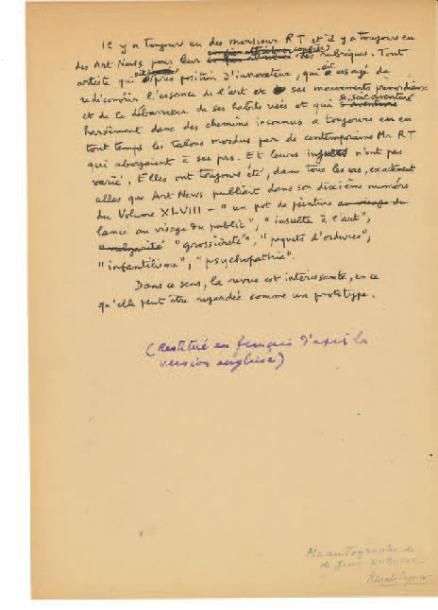 Il y a toujours eu des monsieur RT et il y a toujours eu
des Art News pour leur des rubriques. Tout
artiste qui a pris position d'innovateur, qui a essayé de
redécouvrir l'essence de l'art et ses mouvements primordiaux
et de le débarrasser de ses habits usés et qui s'est aventuré
hardiment dans des chemins inconnus a toujours eu en
tout temps les talons mordus par de contemporains Mr RT
qui aboyaient à ses pas. Et leurs injures n'ont pas
varié. Elles ont toujours été, dans tous les cas, exactement
celles que Art News publiait dans son dixième numéro
du Volume XLVIII - "un pot de peinture
lancé au visage du public", "insulte à l'art",
"grossièreté", "paquets d'ordures",
"infantilisme", "psychopathie".
Dans ce sens, la revue est intéressante, en ce
qu'elle peut être regardée comme un prototype.
(Restitué en français d'après la
version anglaise)
de Jean